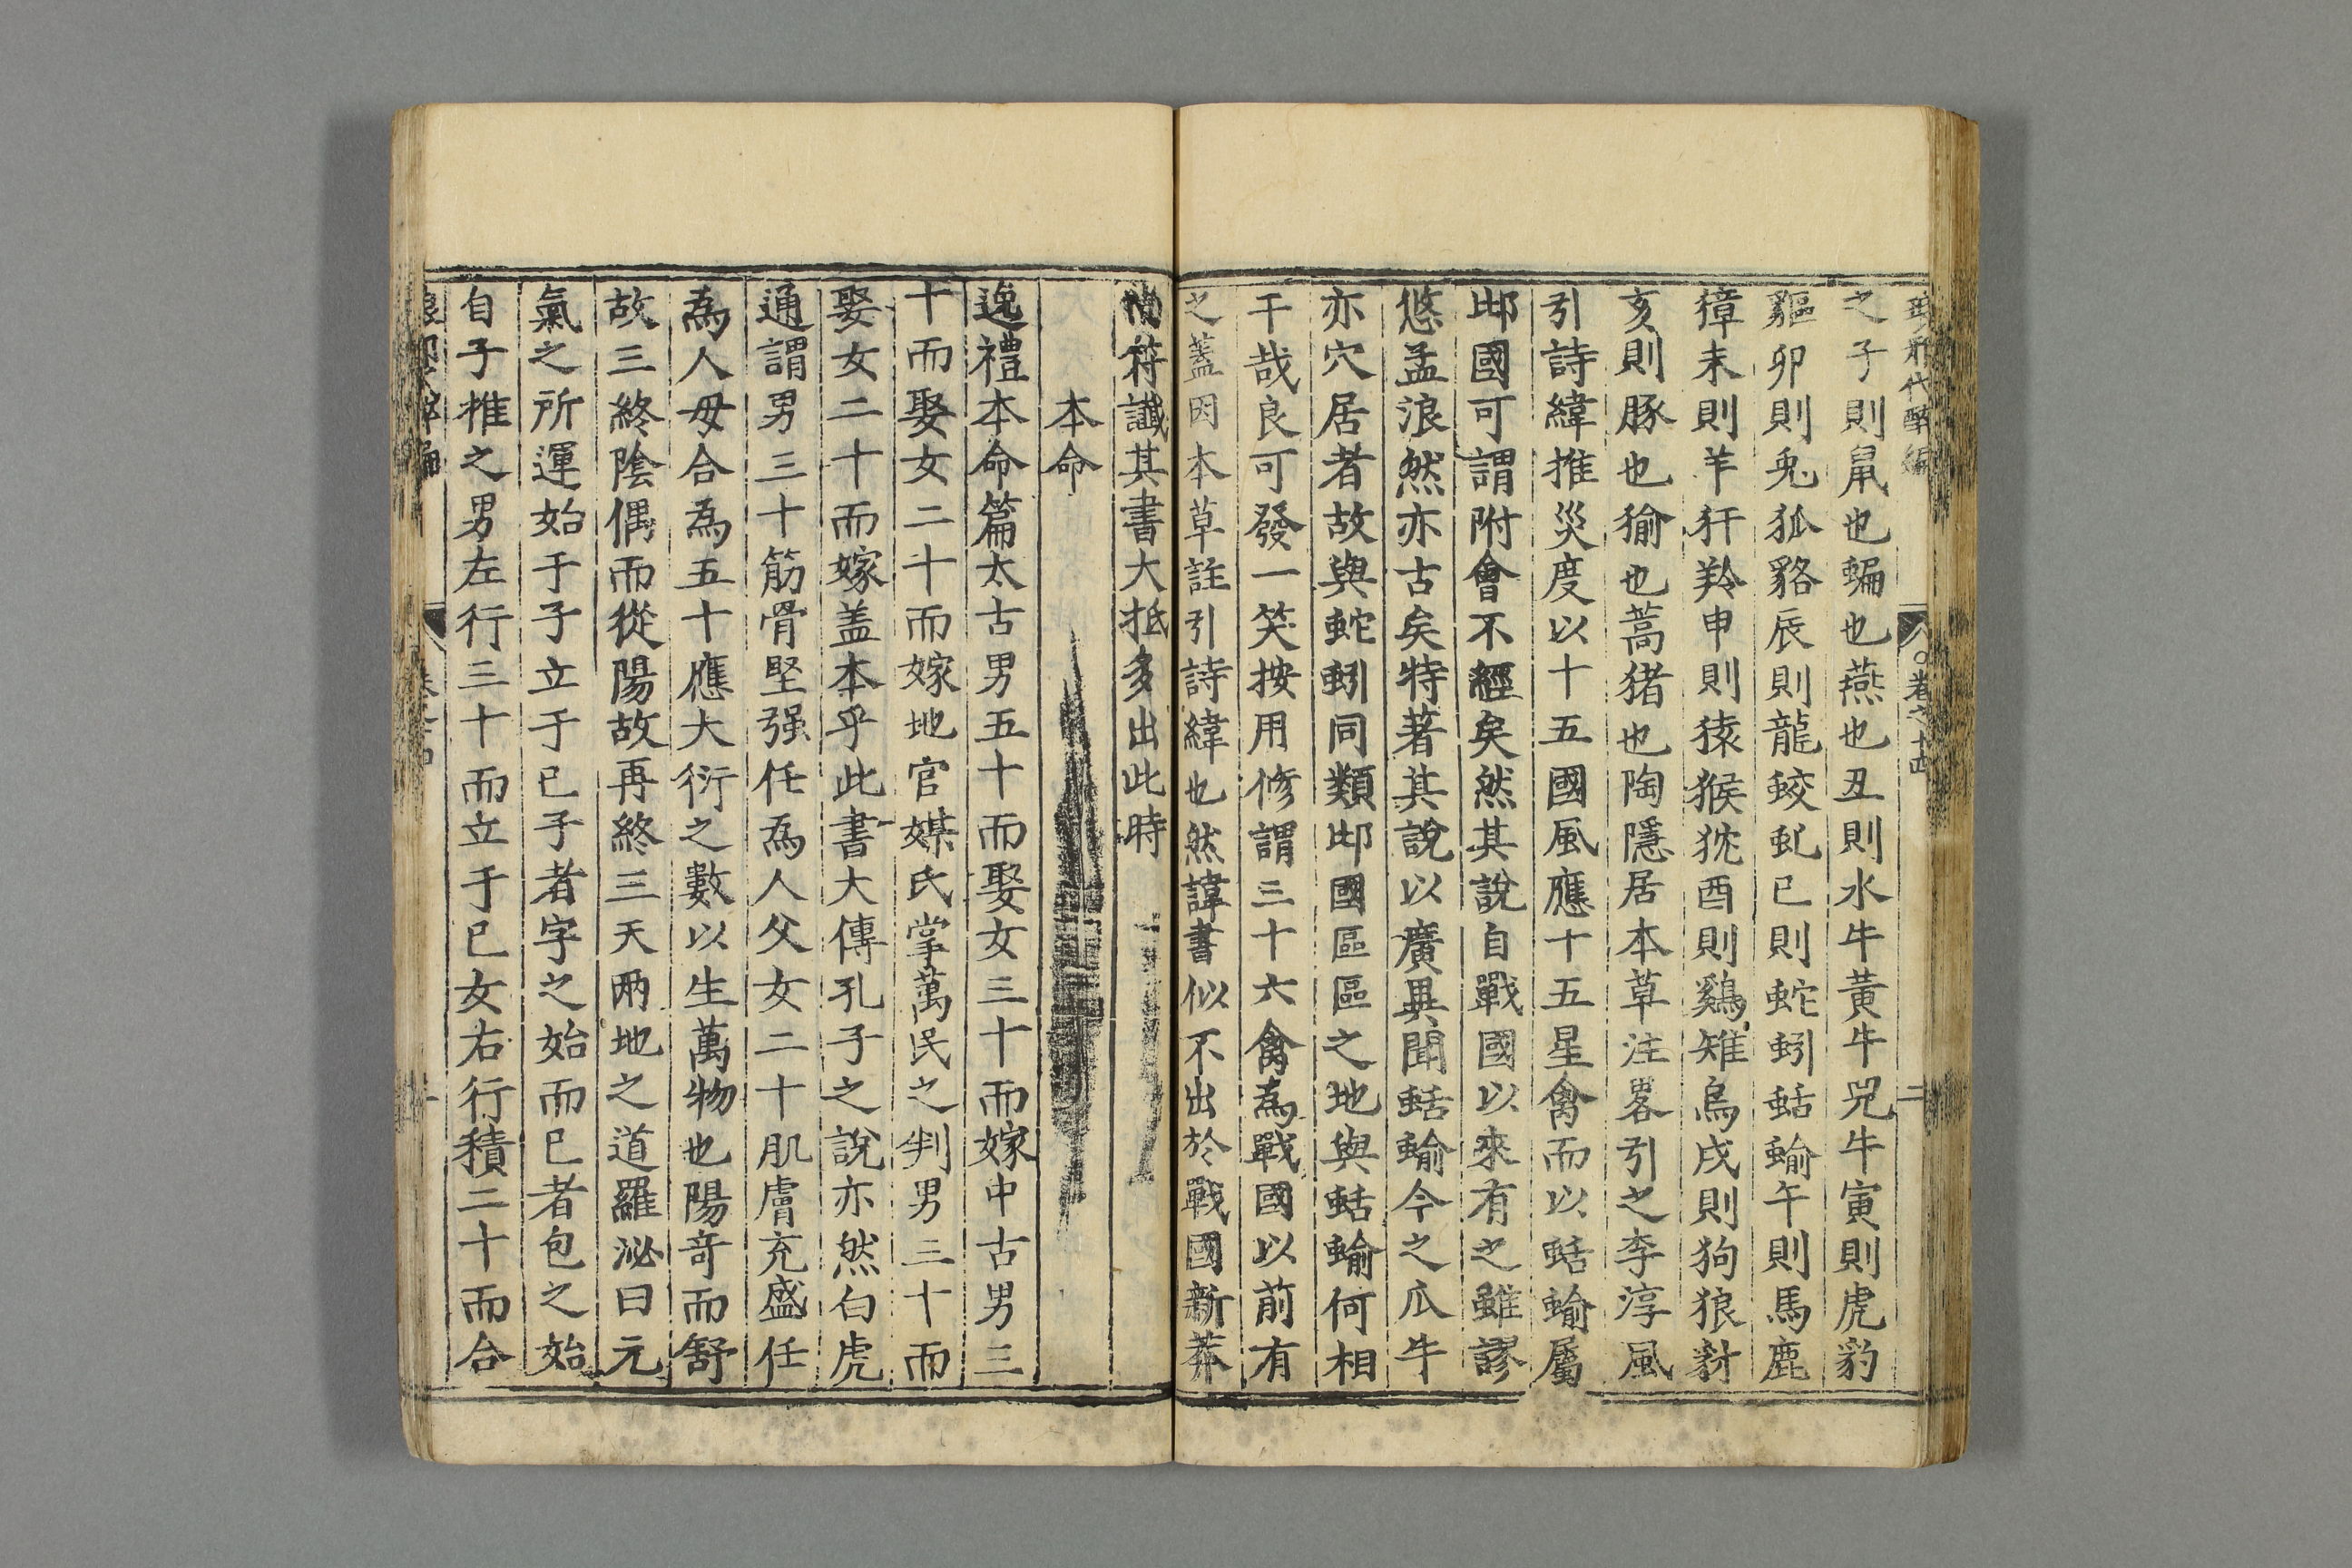 琅邪代醉編 卷之十四 二
之子則鼠也蝙也燕也丑則水牛黃牛兕牛寅則虎豹
貙卯則兎狐貉辰則龍蛟虬巳則蛇蚓蛞蝓午則馬鹿
獐未則羊犴羚申則猿猴狖酉則鷄雉烏戌則狗狼豺
亥則豚也㺄也蒿猪也陶隱居本草注畧引之李淳風
引詩緯推災度以十五國風應十五星禽而以蛞蝓屬
邶國可謂附會不經矣然其說自戰國以來有之雖謬
悠孟浪然亦古矣特著其說以廣異聞蛞蝓今之瓜牛
亦穴居者故與蛇蚓同類邶國區區之地與蛞蝓何相
干哉良可發一笑按用修謂三十六禽爲戰國以前有
之葢因本草註引詩緯也然諱書似不出於戰國新莽
尚符讖其書大抵多出此時
本命
逸禮本命篇太古男五十而娶女三十而嫁中古男三
十而娶女二十而嫁地官媒氏掌萬民之判男三十而
娶女二十而嫁盖本乎此書大傳孔子之說亦然白虎
通謂男三十筋骨堅强任爲人父女二十肌膚充盛任
爲人母合爲五十應大衍之數以生萬物也陽竒而舒
故三終陰偶而從陽故再終三天兩地之道羅泌曰元
氣之所運始于子立于巳子者字之始而巳者包之始
自子推之男左行三十而立于巳女右行積二十而合